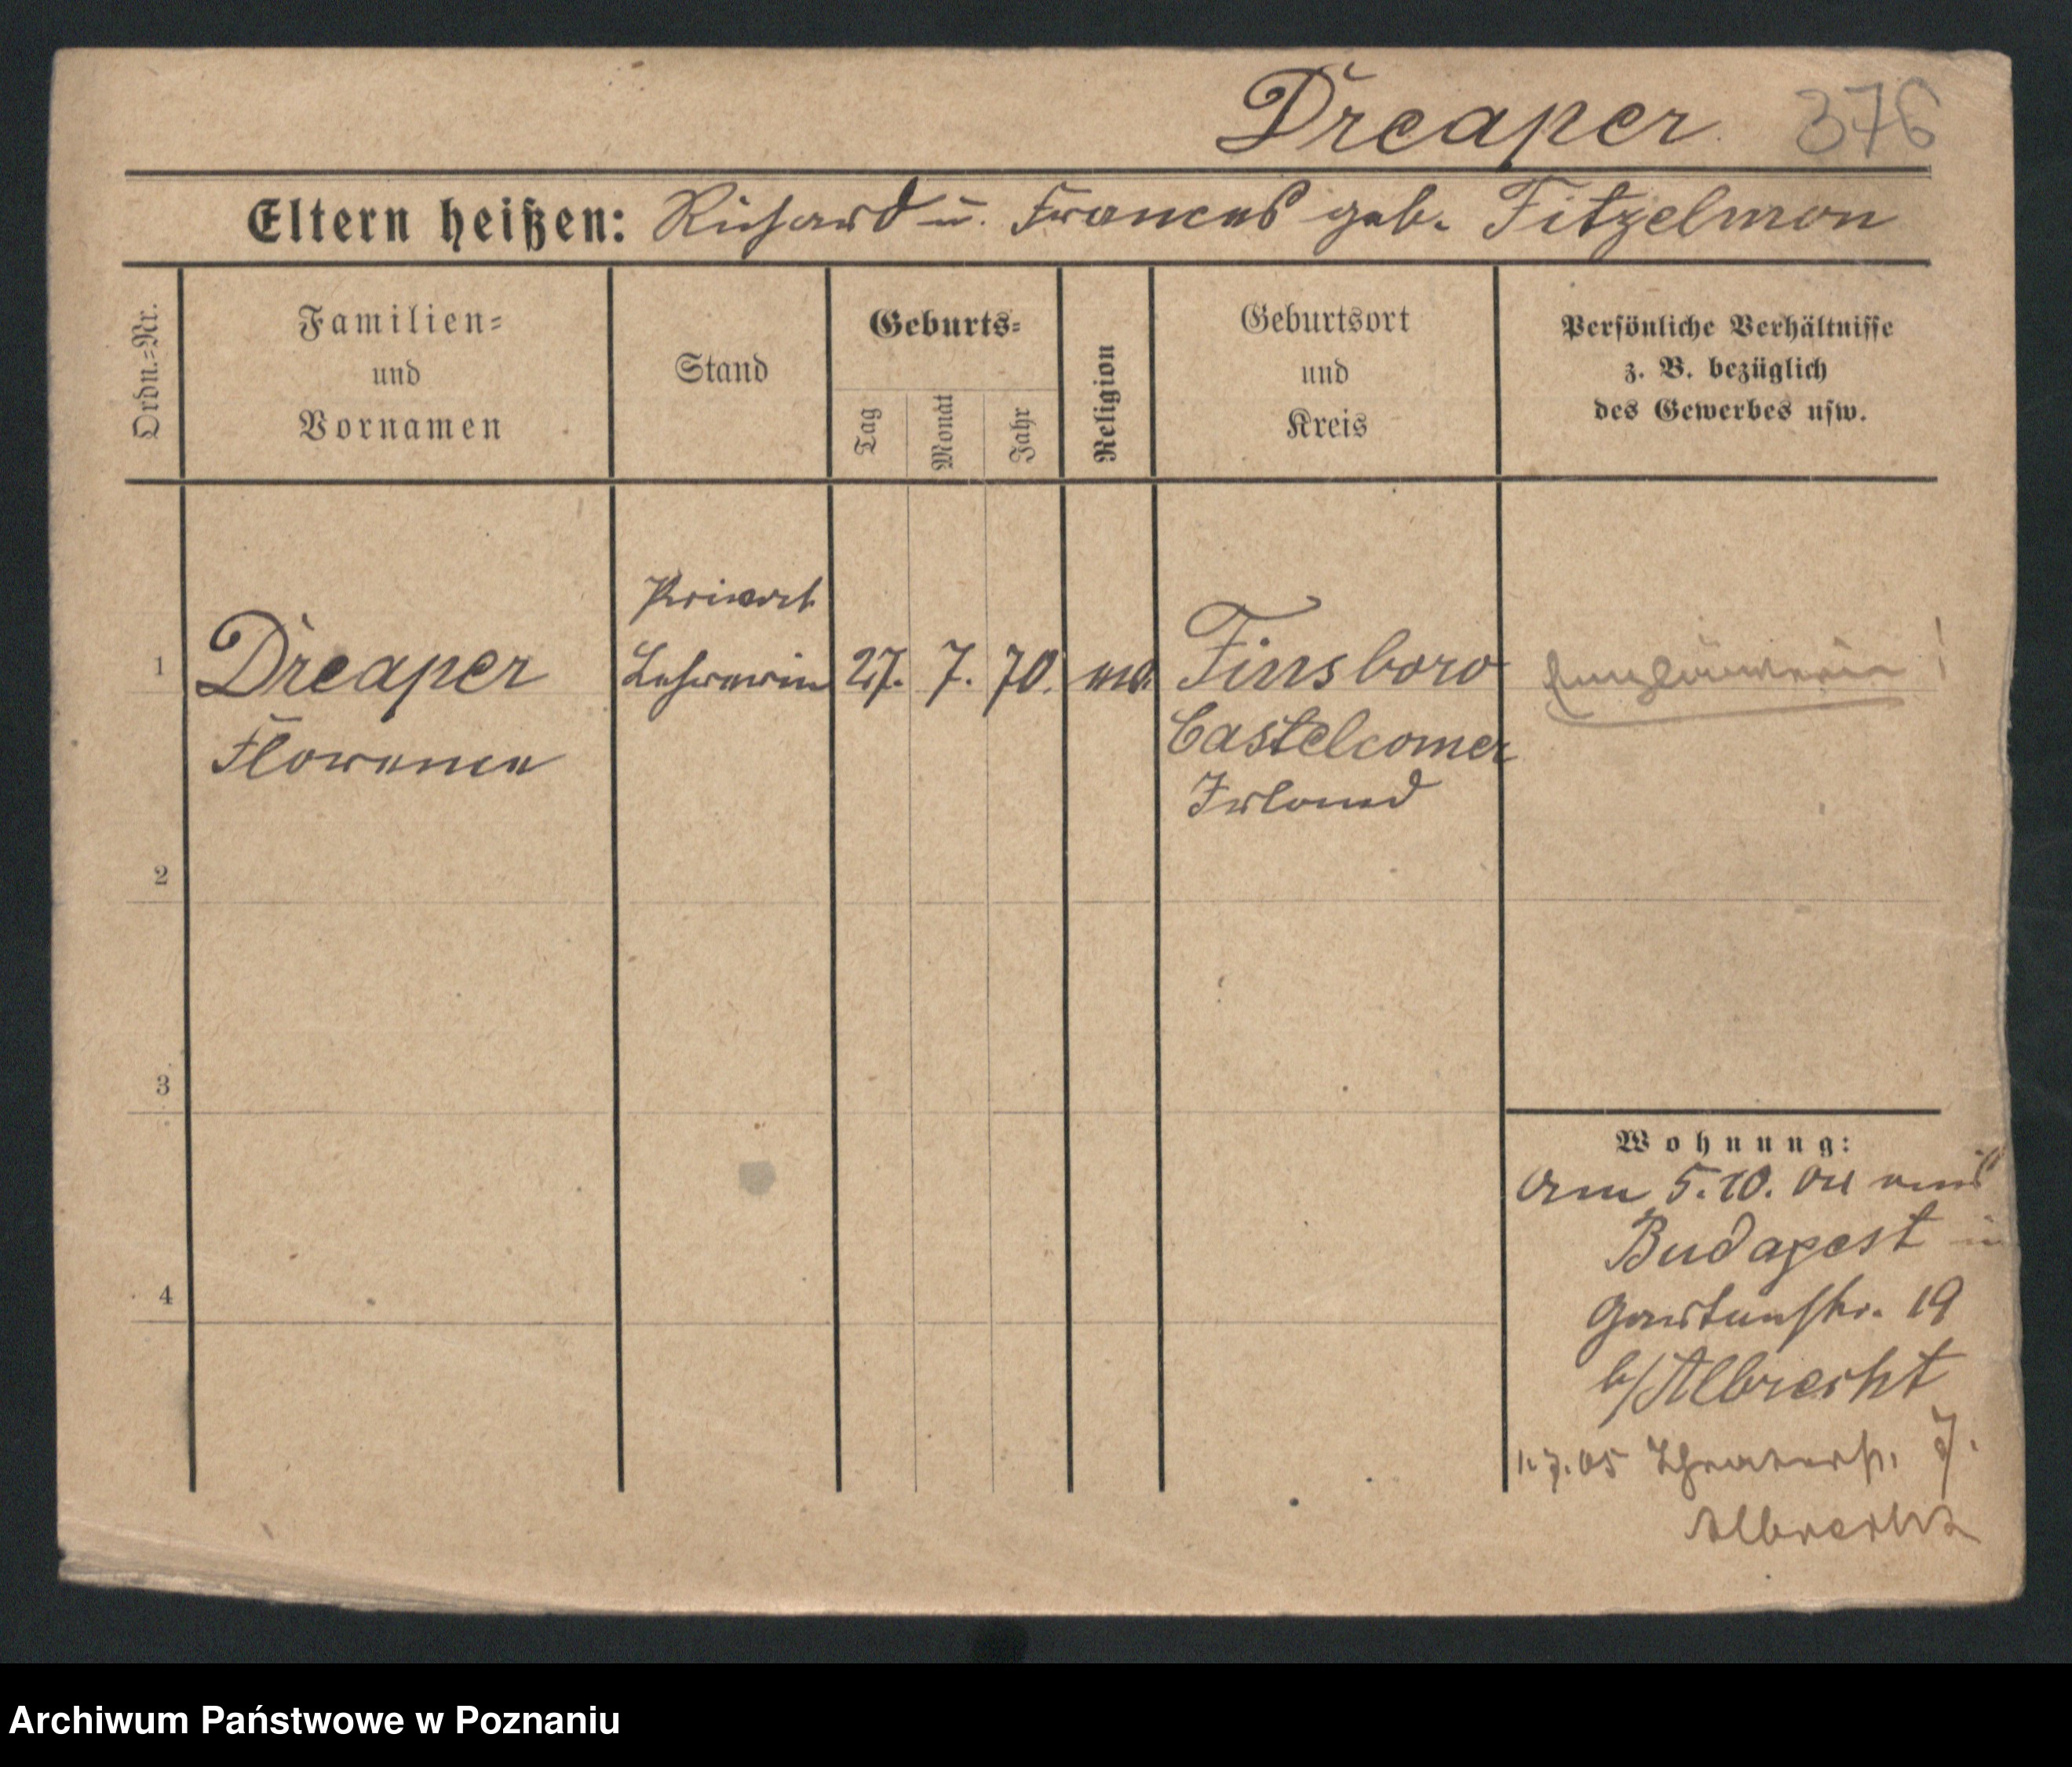 Dreaper 376
Eltern heißen: Richard u. Frances geb. Fitzelmon
Ordn.=Nr.
Familien=
und
Vornamen
Stand
Geburts=
Tag
Monat
Jahr
Religion
Geburtsort
und
Kreis
Persönliche Verhältnisse
z. B. bezüglich
des Gewerbes usw.
Privat
1 Dreaper Lehrerin 27. 7. 70. Finsboro Engländerin!
Florence Castelcomer
Irland
2
3
4
Wohnung:
Am 5.10.04 aus
Budapest in
Gartenstr. 19
b/Albrecht
1.7.05 Theaterstr. 7.
Albrecht
Archiwum Państwowe w Poznaniu